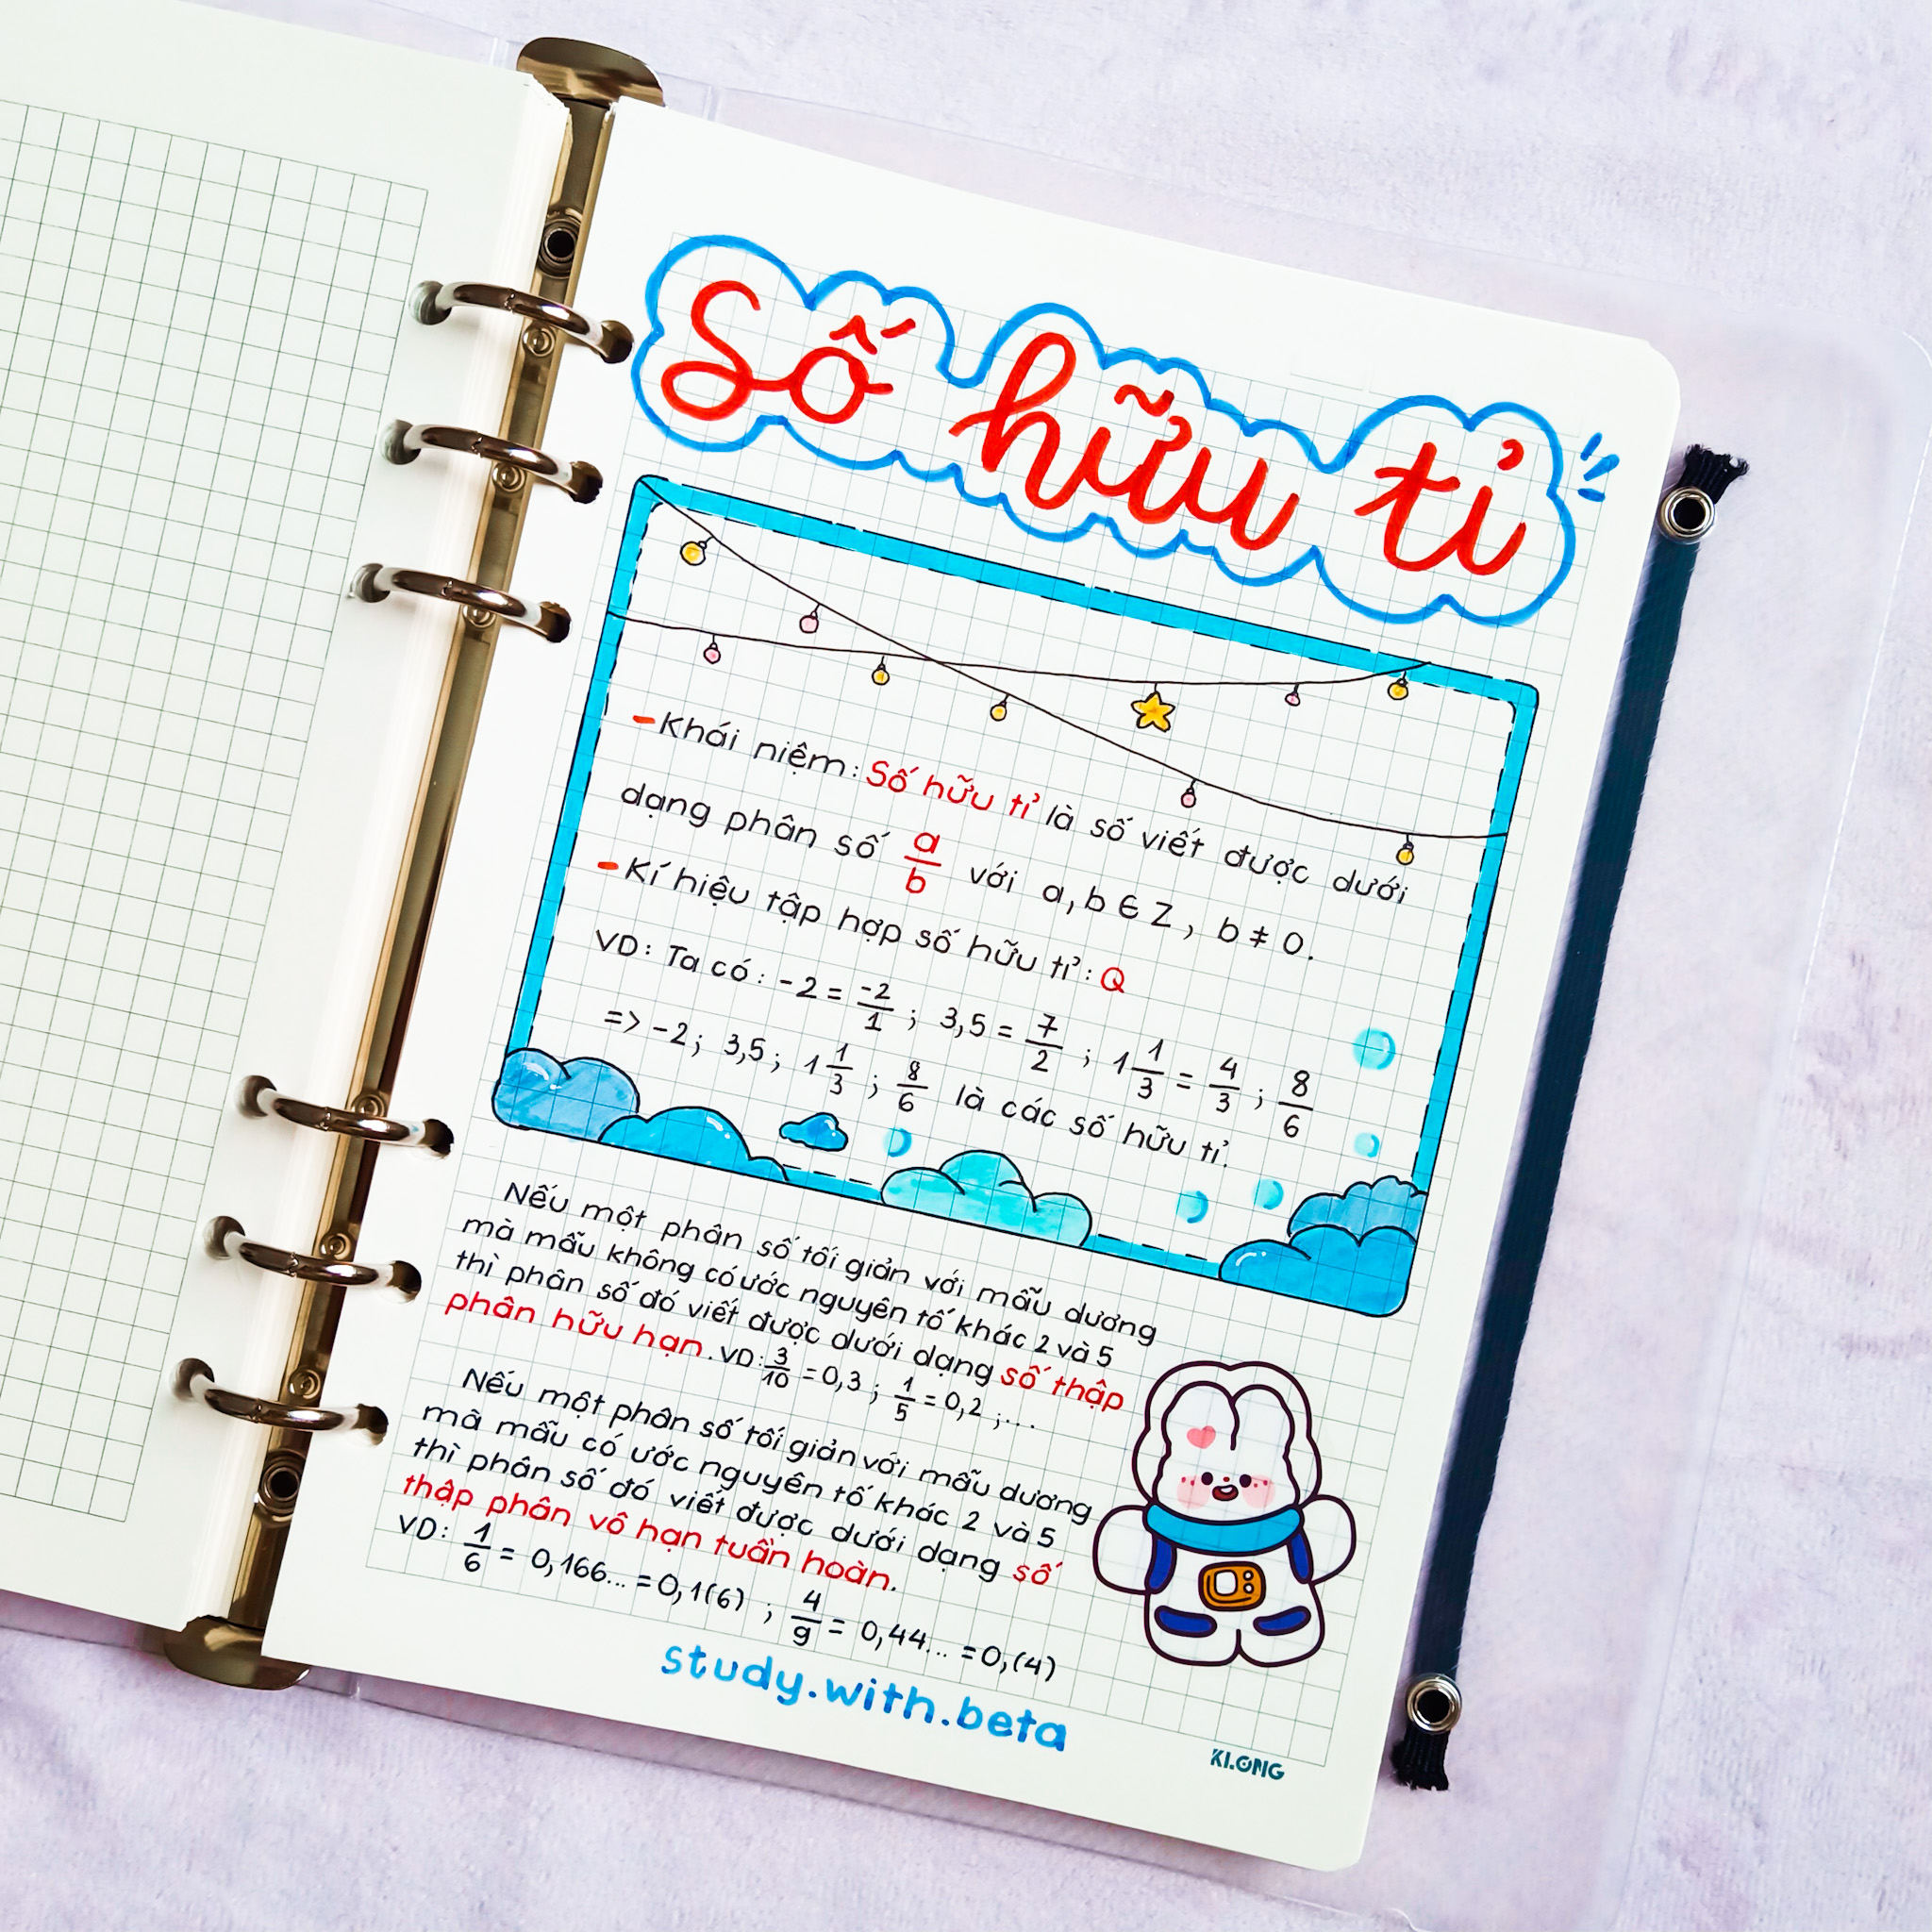 Số hữu tỉ
- Khái niệm: Số hữu tỉ là số viết được dưới
dạng phân số a/b với a, b ∈ Z, b ≠ 0.
- Kí hiệu tập hợp số hữu tỉ: Q
VD: Ta có: -2 = -2/1 ; 3,5 = 7/2 ; 1 1/3 = 4/3 ; 8/6
=> -2; 3,5; 1 1/3 ; 8/6 là các số hữu tỉ.
Nếu một phân số tối giản với mẫu dương
mà mẫu không có ước nguyên tố khác 2 và 5
thì phân số đó viết được dưới dạng số thập
phân hữu hạn. VD: 3/10 = 0,3 ; 1/5 = 0,2 ;...
Nếu một phân số tối giản với mẫu dương
mà mẫu có ước nguyên tố khác 2 và 5
thì phân số đó viết được dưới dạng số
thập phân vô hạn tuần hoàn.
VD: 1/6 = 0,166... = 0,1(6) ; 4/9 = 0,44... = 0,(4)
study.with.beta
KLONG